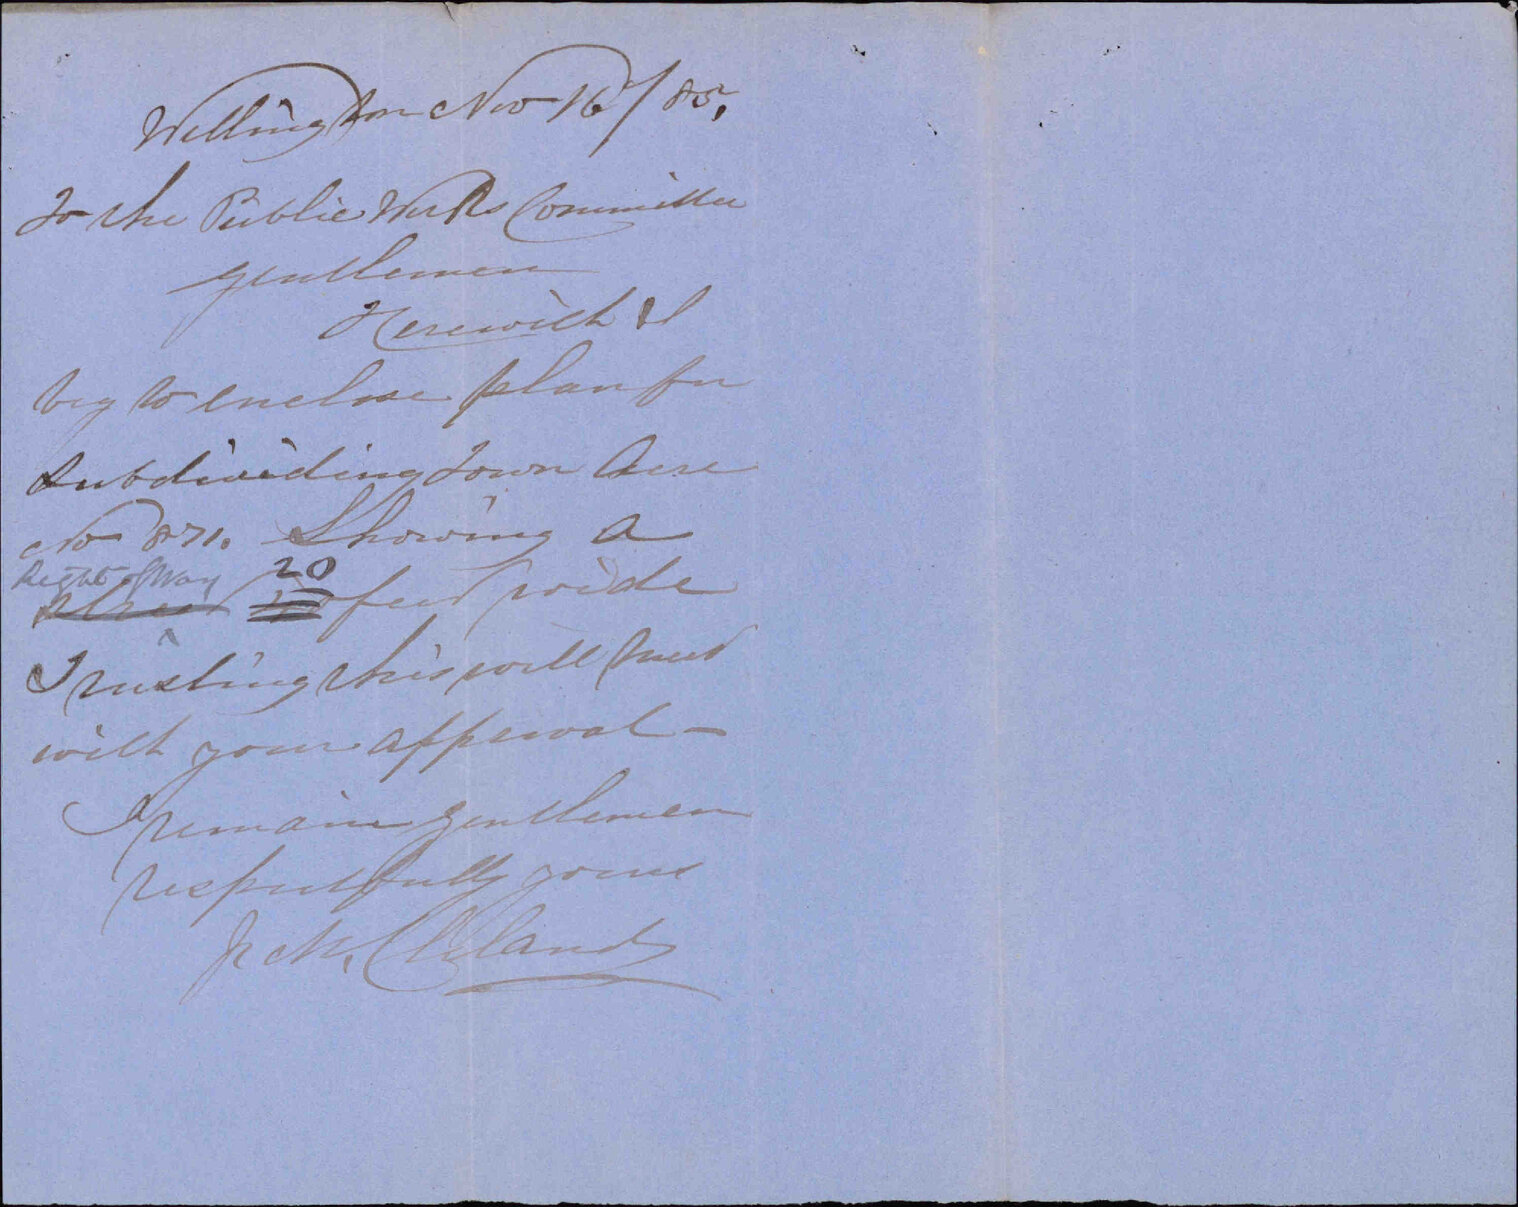 Wellington Nov 16/85,
To the Public Works Committee
gentlemen
Herewith I
beg to enclose plan for
Subdividing Town Acre
No 871. Showing a
Right of Way 20
street feet wide
Trusting this will meet
with your approval —
I remain gentlemen
respectfully yours
Cleland